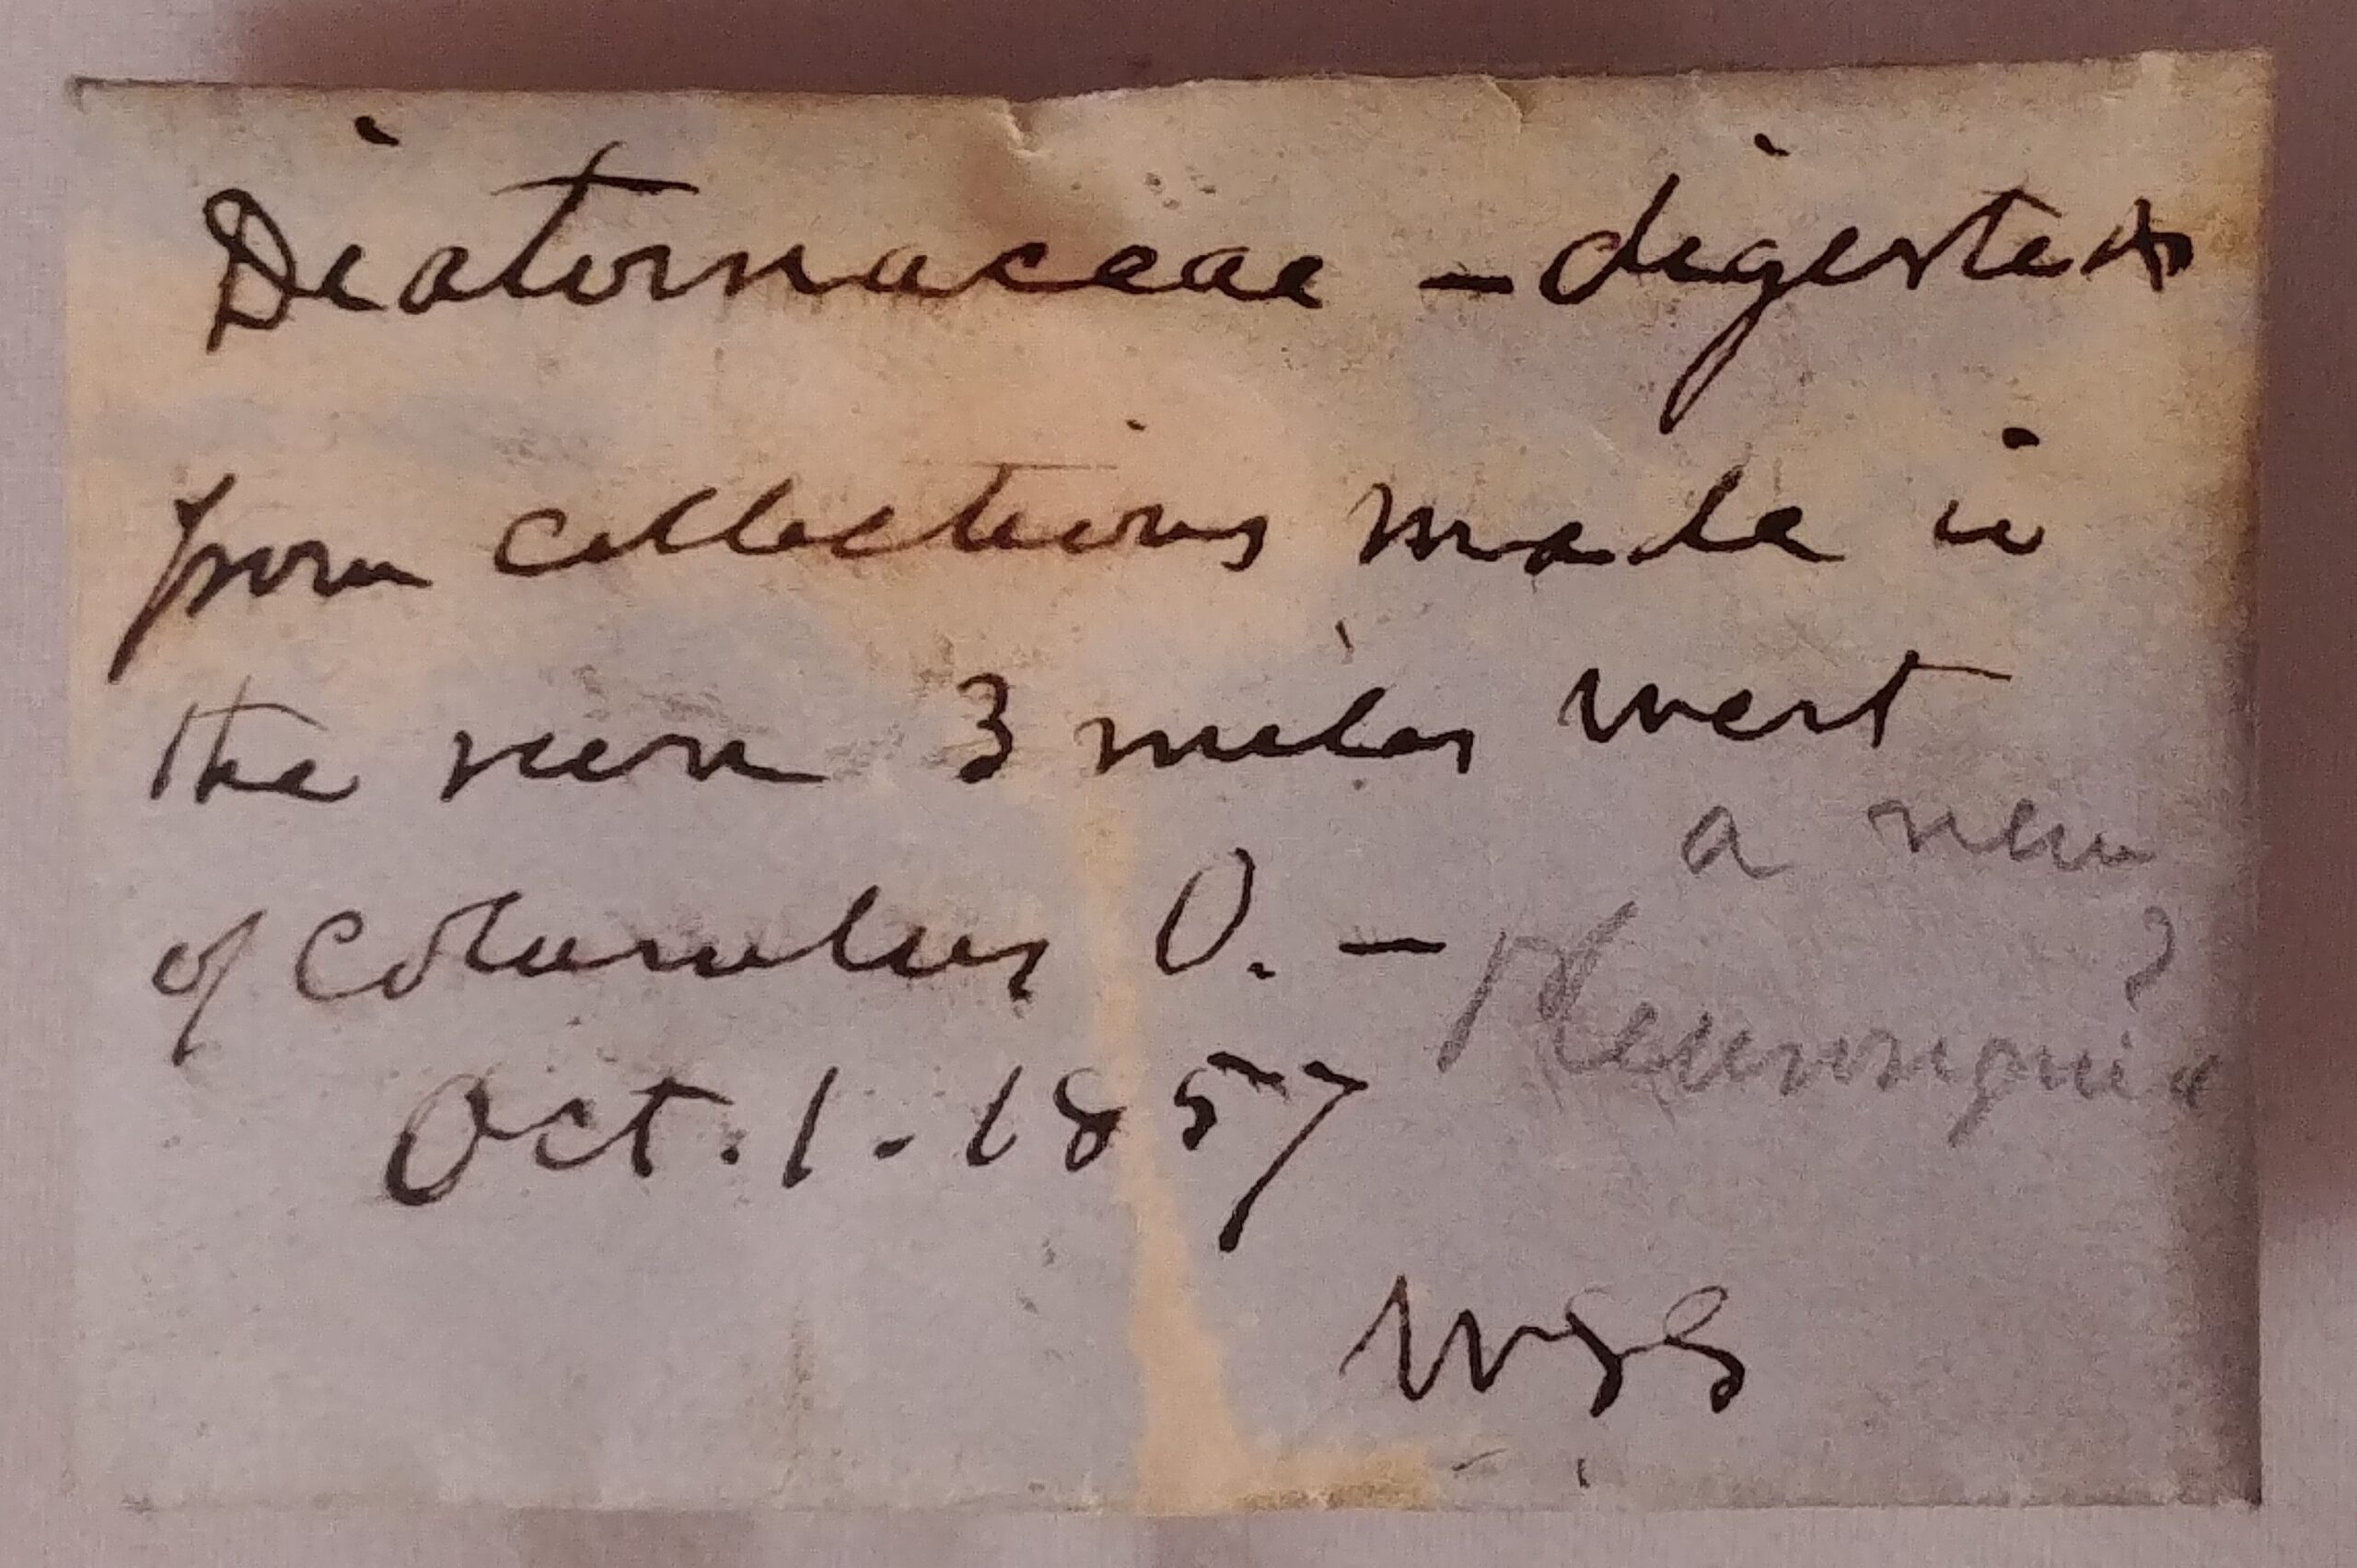 Diatomaceae – digested
from collections made in
the river 3 miles west
of Columbus O. –
a new
Pleurosigma ?
Oct. 1. 1857
WSS